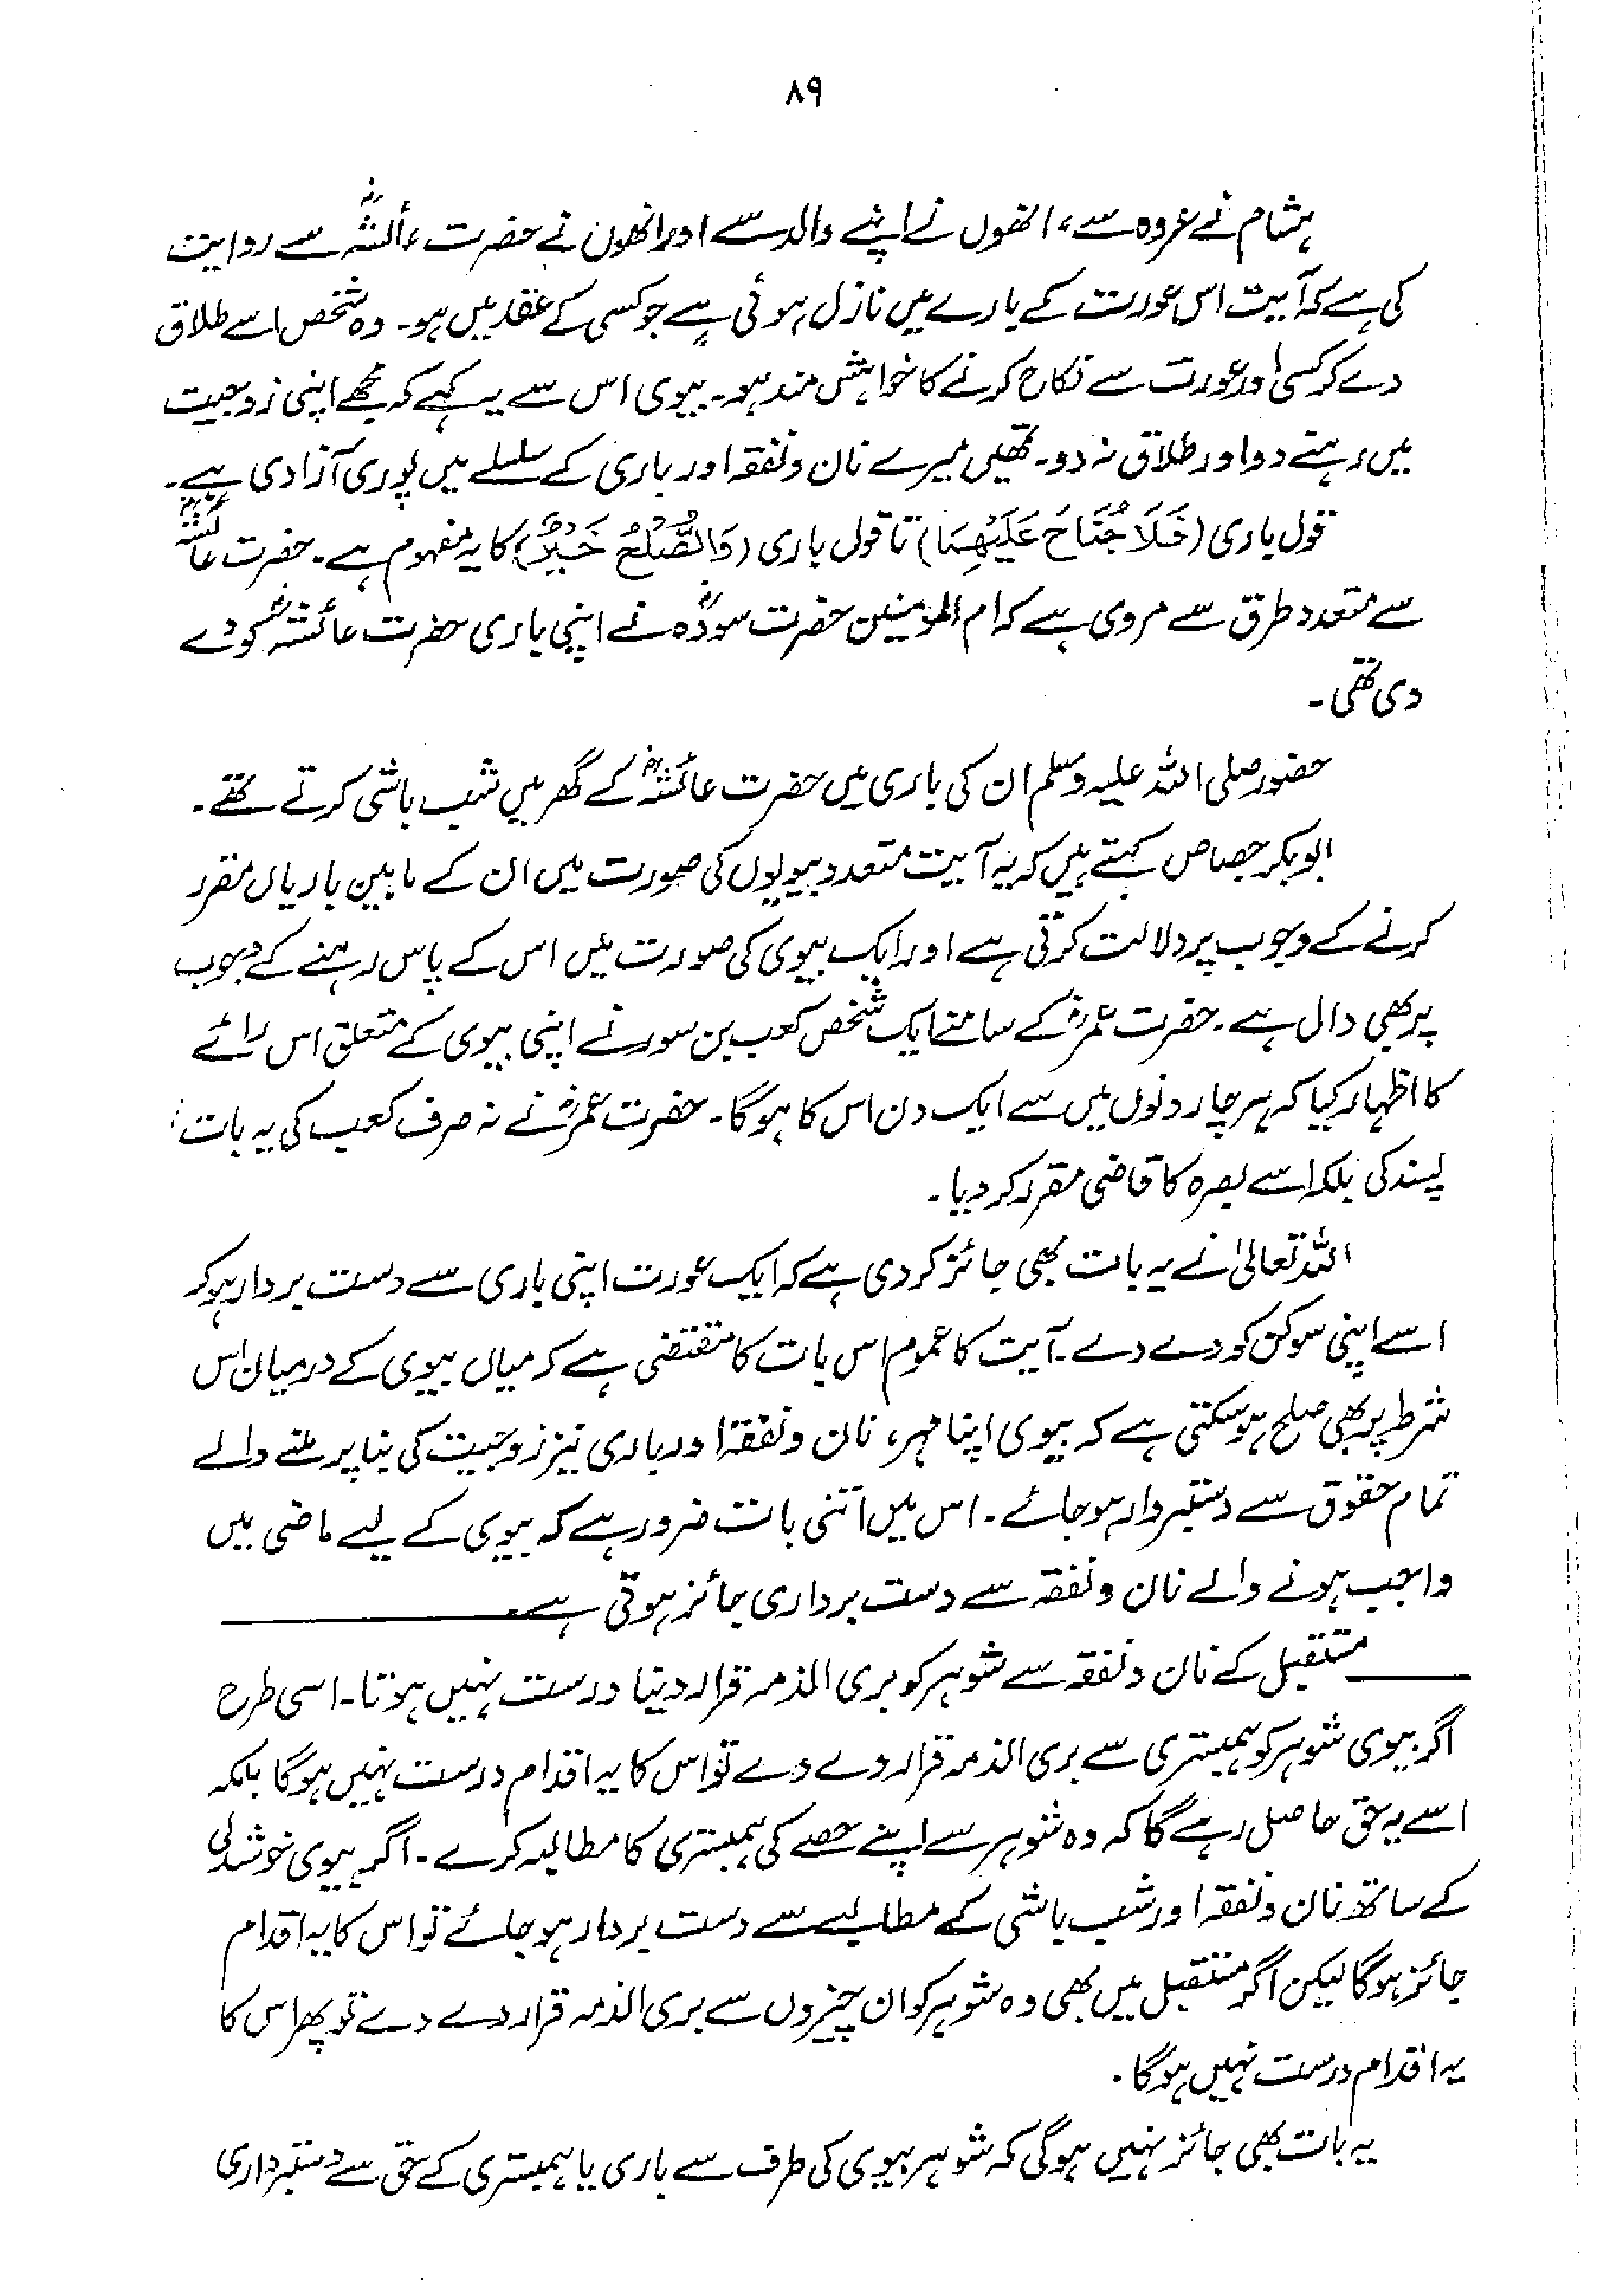 ۸۹
ہشام نے عروہ سے، انھوں نے اپنے والد سے اور انھوں نے حضرت عائشہؓ سے روایت
کی ہے کہ آیت اس عورت کے بارے میں نازل ہوئی ہے جو کسی کے عقد میں ہو۔ وہ شخص اسے طلاق
دے کر کسی اور عورت سے نکاح کرنے کا خواہش مند ہو۔ بیوی اس سے یہ کہے کہ مجھے اپنی زوجیت
میں رہنے دو اور طلاق نہ دو۔ تمھیں میرے نان و نفقہ اور باری کے سلسلے میں پوری آزادی ہے۔
قول باری (فَلَا جُنَاحَ عَلَيْهِمَا) تا قول باری (وَالصُّلْحُ خَيْرٌ) کا یہ مفہوم ہے۔ حضرت عائشہؓ
سے متعدد طرق سے مروی ہے کہ ام المؤمنین حضرت سودہؓ نے اپنی باری حضرت عائشہؓ کو دے
دی تھی۔
حضور صلی اللہ علیہ وسلم ان کی باری میں حضرت عائشہؓ کے گھر میں شب باشی کرتے تھے۔
ابوبکر جصاص کہتے ہیں کہ یہ آیت متعدد بیویوں کی صورت میں ان کے مابین باریاں مقرر
کرنے کے وجوب پر دلالت کرتی ہے اور ایک بیوی کی صورت میں اس کے پاس رہنے کے وجوب
پر بھی دال ہے۔ حضرت عمرؓ کے سامنے ایک شخص کعب بن سور نے اپنی بیوی کے متعلق اس رائے
کا اظہار کیا کہ ہر چار دنوں میں سے ایک دن اس کا ہوگا۔ حضرت عمرؓ نے نہ صرف کعب کی یہ بات
پسند کی بلکہ اسے بصرہ کا قاضی مقرر کر دیا۔
اللہ تعالیٰ نے یہ بات بھی جائز کر دی ہے کہ ایک عورت اپنی باری سے دست بردار ہو کر
اسے اپنی سوکن کو دے دے۔ آیت کا عموم اس بات کا مقتضی ہے کہ میاں بیوی کے درمیان اس
شرط پر بھی صلح ہو سکتی ہے کہ بیوی اپنا مہر، نان و نفقہ اور باری نیز زوجیت کی بنا پر ملنے والے
تمام حقوق سے دستبردار ہو جائے۔ اس میں اتنی بات ضرور ہے کہ بیوی کے لیے ماضی میں
واجب ہونے والے نان و نفقہ سے دست برداری جائز ہوتی ہے۔
مستقبل کے نان و نفقہ سے شوہر کو بری الذمہ قرار دینا درست نہیں ہوتا۔ اسی طرح
اگر بیوی شوہر کو ہمبستری سے بری الذمہ قرار دے دے تو اس کا یہ اقدام درست نہیں ہوگا بلکہ
اسے یہ حق حاصل رہے گا کہ وہ شوہر سے اپنے حصے کی ہمبستری کا مطالبہ کرے۔ اگر بیوی خوشدلی
کے ساتھ نان و نفقہ اور شب باشی کے مطالبے سے دست بردار ہو جائے تو اس کا یہ اقدام
جائز ہوگا لیکن اگر مستقبل میں بھی وہ شوہر کو ان چیزوں سے بری الذمہ قرار دے دے تو پھر اس کا
یہ اقدام درست نہیں ہوگا۔
یہ بات بھی جائز نہیں ہوگی کہ شوہر بیوی کی طرف سے باری یا ہمبستری کے حق سے دستبرداری